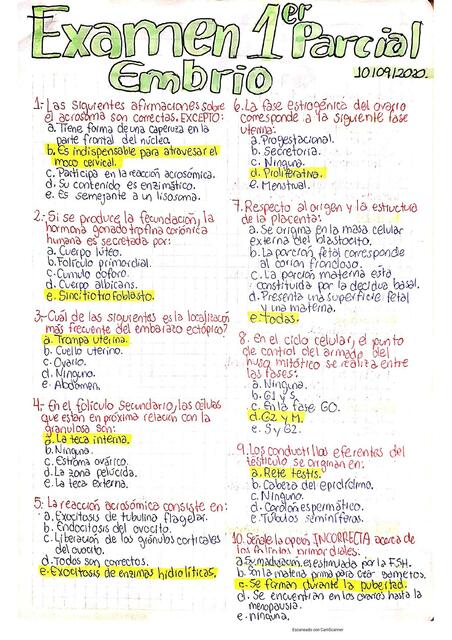 Examen 1er Parcial
Embrio
10/09/2020
1- Las siguientes afirmaciones sobre
el acrosoma son correctas, EXCEPTO:
a. Tiene forma de una caperuza en la
parte frontal del núcleo.
b. Es indispensable para atravesar el
moco cervical.
c. Participa en la reacción acrosómica.
d. Su contenido es enzimático.
e. Es semejante a un lisosoma.
2- Si se produce la fecundación, la
hormona gonadotropina coriónica
humana es secretada por:
a. Cuerpo lúteo.
b. Folículo primordial.
c. Cumulo ooforo.
d. Cuerpo albicans.
e. Sincitiotrofoblasto.
3- Cuál de las siguientes es la localización
más frecuente del embarazo ectópico?
a. Trompa uterina.
b. Cuello uterino.
c. Ovario.
d. Ninguno.
e. Abdomen.
4- En el folículo secundario, las células
que están en próxima relación con la
granulosa son:
a. La teca interna.
b. Ninguna.
c. Estroma ovárico.
d. La zona pelúcida.
e. La teca externa.
5. La reacción acrosómica consiste en:
a. Exocitosis de tubulina flagelar.
b. Endocitosis del ovocito.
c. Liberación de los gránulos corticales
del ovocito.
d. Todos son correctos.
e. Exocitosis de enzimas hidrolíticas.
6. La fase estrogénica del ovario
corresponde a la siguiente fase
uterina:
a. Progestacional.
b. Secretoria.
c. Ninguna.
d. Proliferativa.
e. Menstrual.
7. Respecto al origen y la estructura
de la placenta:
a. Se origina en la masa celular
externa del blastocito.
b. La porción fetal corresponde
al corion frondoso.
c. La porción materna está
constituida por la decidua basal.
d. Presenta una superficie fetal
y una materna.
e. Todas.
8. En el ciclo celular, el punto
de control del armado del
huso mitótico se realiza entre
las fases:
a. Ninguna.
b. G1 y S.
c. En la fase G0.
d. G2 y M.
e. S y G2.
9. Los conductillos eferentes del
testículo se originan en:
a. Rete testis.
b. Cabeza del epidídimo.
c. Ninguno.
d. Cordón espermático.
e. Túbulos seminíferos.
10. Señale la opción INCORRECTA acerca de
los folículos primordiales:
a. Su maduración es estimulada por la FSH.
b. Son la materia prima para crear gametos.
c. Se forman durante la pubertad.
d. Se encuentran en los ovarios hasta la
menopausia.
e. ninguna.
Escaneado con CamScanner